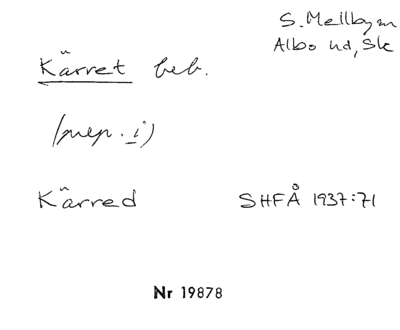 S. Mellby sn
Albo hd, Sk
Kärret beb.
(prep. i)
Kärred SHFÅ 1937:71
Nr 19878